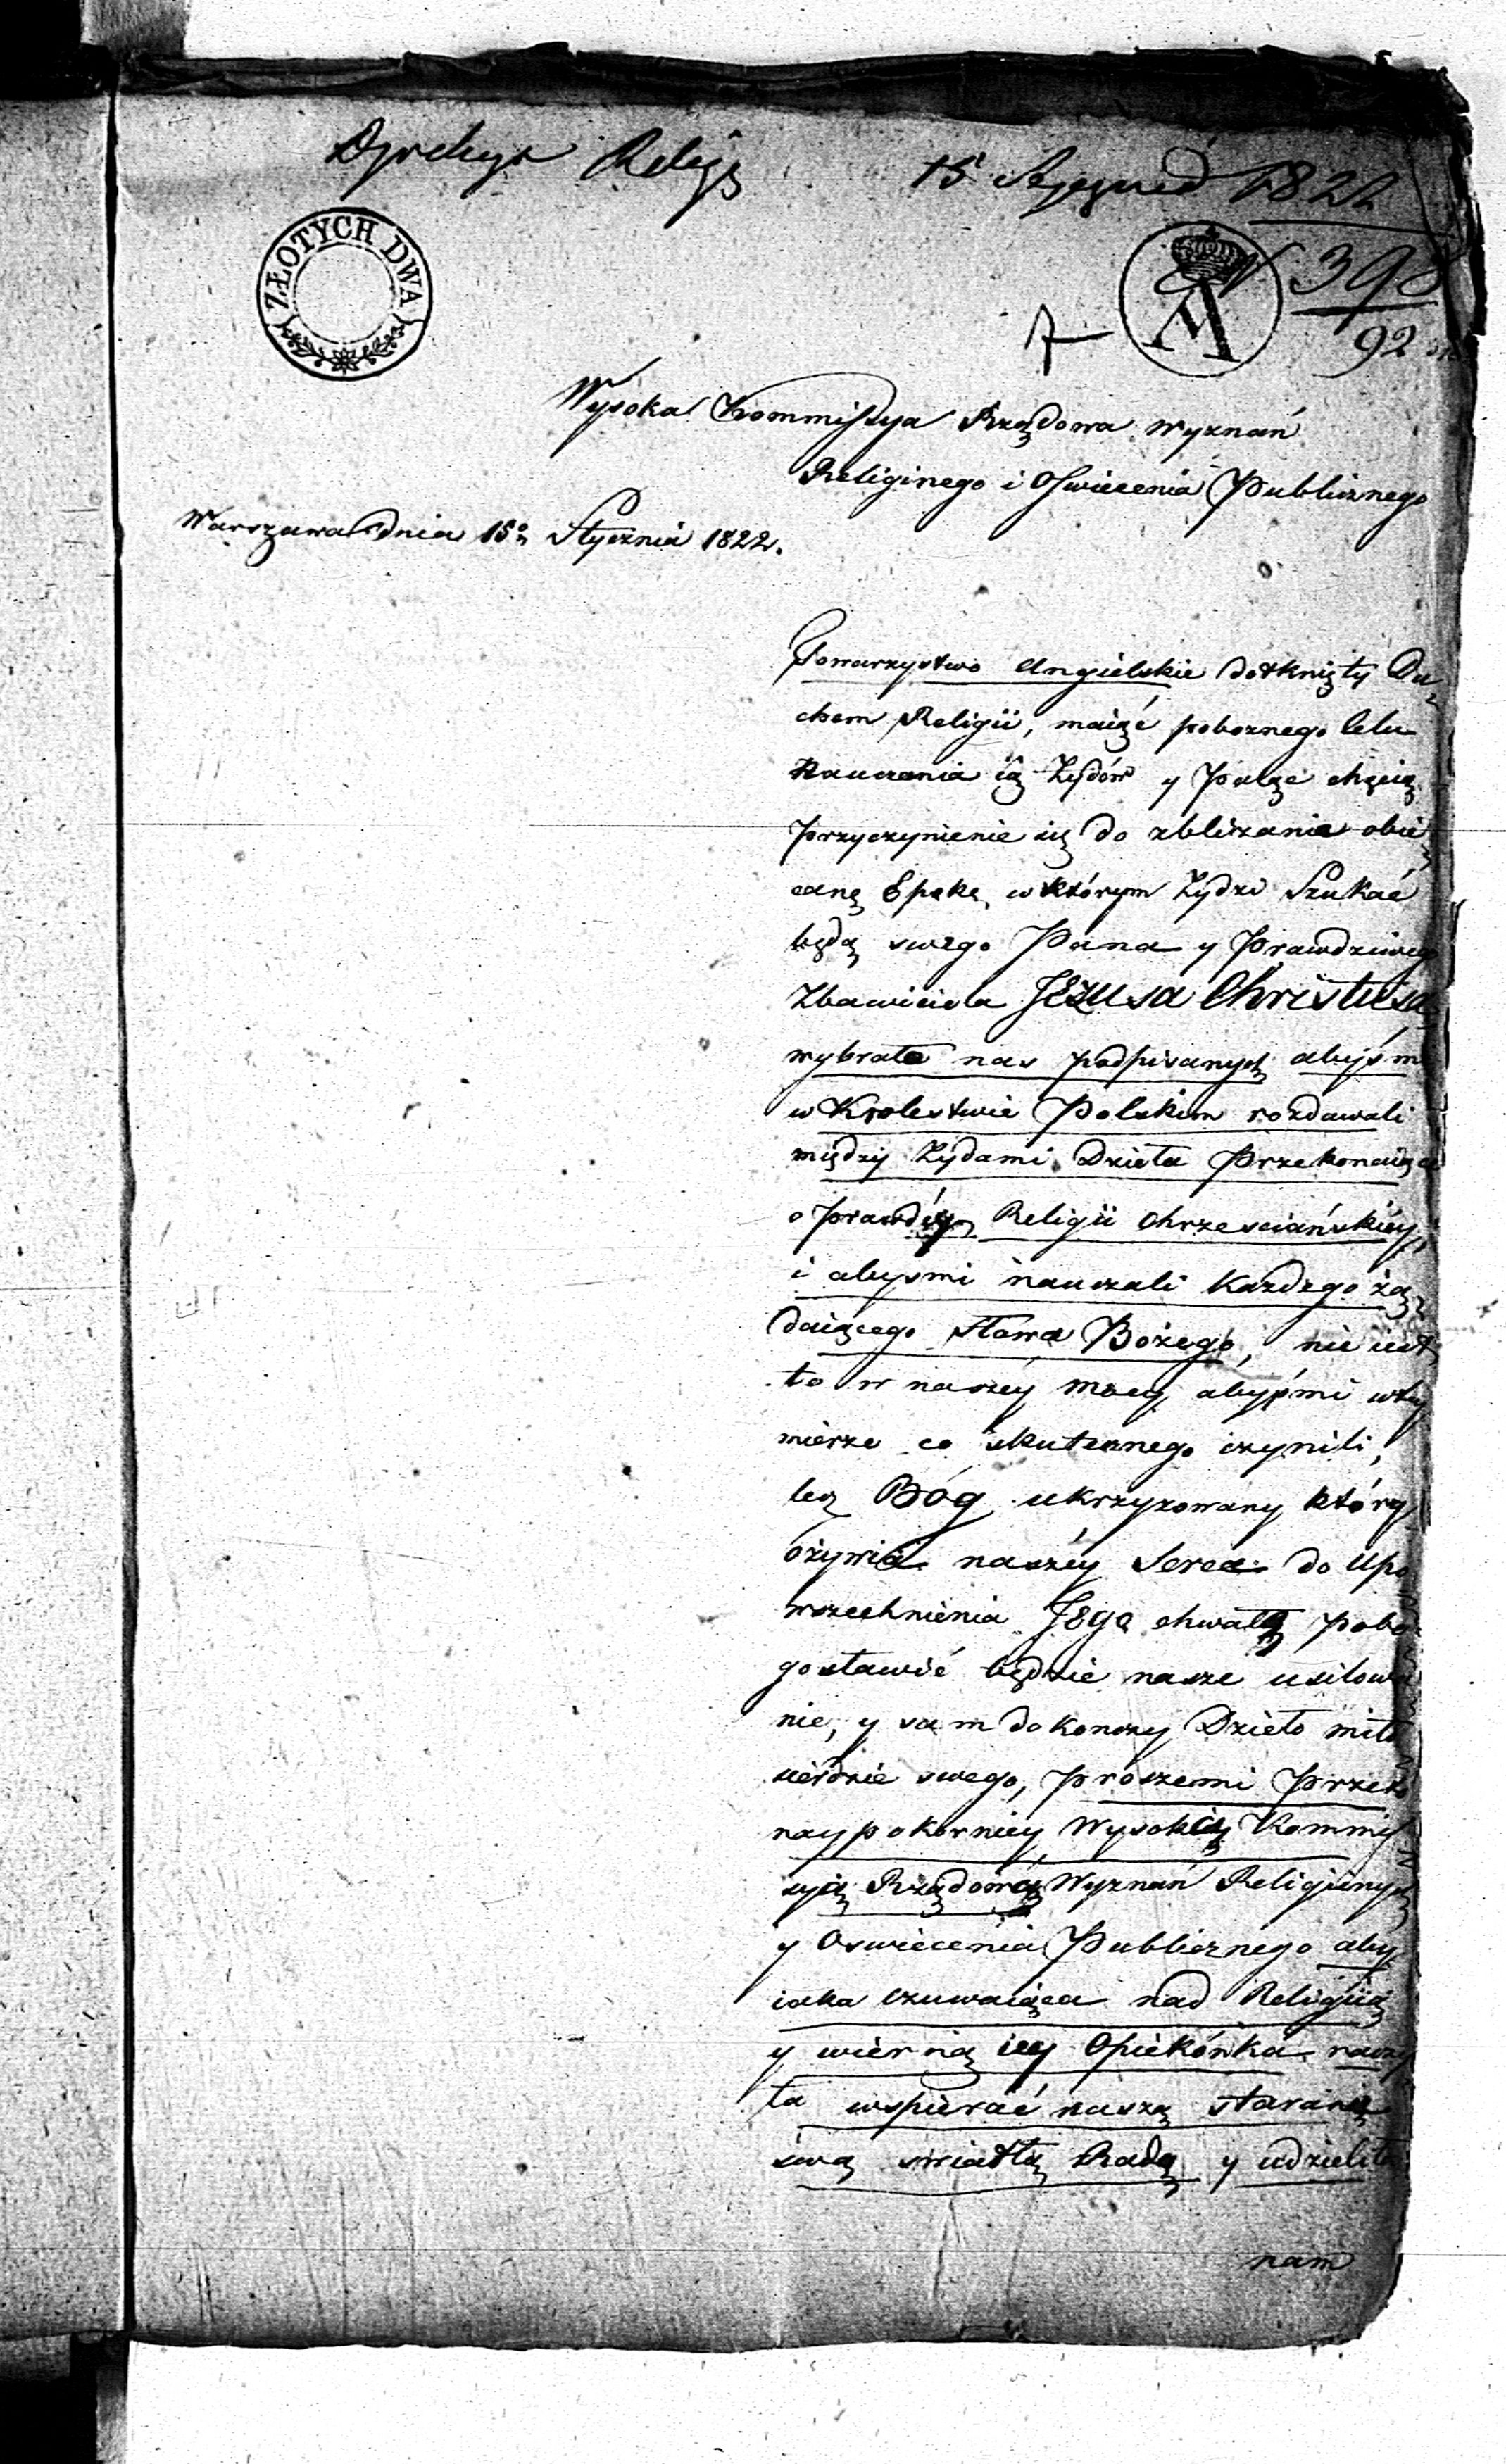 Dyrekcya Religij 15 Styczniá 1822
ZŁOTYCH DWA
N 398
92
A
Wysoka Kommissya Rządowa Wyznań
Religinego i Oswiecenia Publicznego
Warszawa dnia 15º Stycznia 1822.
Towarzystwo Angielskie dotknięty Du
chem Religii, maiąć poboznego Celu
Nauczania ią Zydów y Pałąc chęcią
przyczynienie się do zblizania obie
caną Epokę, w którym Zydzi Szukać
będą swego Pana y Prawdziwego
Zbawiciela JEzusa Christusa
wybrało nas podpisanych abyśmi
w Krolestwie Polskim rozdawali
między Zydami Dzieła Przekonaiące
o prawdzie Religii Chrzesciańskiéy,
i abysmi nauczali Kazdego żą
daiącego Słowa Bożego, nie iest
to w naszéy mocy abyśmi w tey
mierze co skutecznego czynili,
lecz Bóg ukrzyzowany który
ożywia naszéy Serca do Upo
wszechnienia JEgo chwałą pobo
gosławić będzie nasze usilowa
nie, y sam dokonczy Dzieło miło
sierdzie swego, proszemi Przeto
naypokorniey Wysokią Kommis
syią Rządową Wyznań Religijnych
y Oswiecenia Publicznego aby
iaka czuwaiąca nad Religiią
y wierną iey Opiekónka raczy
ła wspierać naszą staranię
swą swiatłą Radą y udzieliła
nam